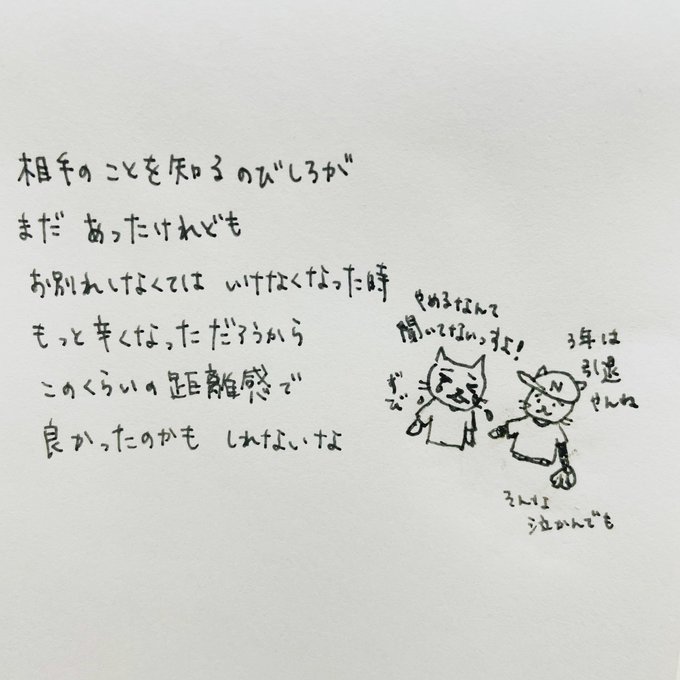 相手のことを知るのびしろが
まだ あったけれども
お別れしなくては いけなくなった時
もっと辛くなっただろうから
このくらいの距離感で
良かったのかも しれないな
やめるなんて
聞いてないっすよ！
ずび
3年は
引退
やんね
N
そんな
泣かんでも